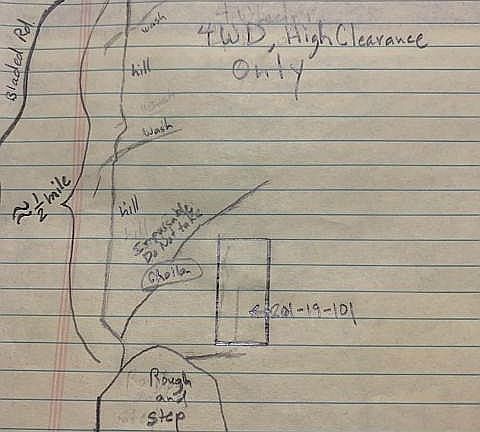 wash
4WD, High Clearance
Only
Bladed Rd.
hill
wash
≈ 1/2 mile
hill
Impassable
Do Not take
Cholla
201-19-101
Rough
and
step